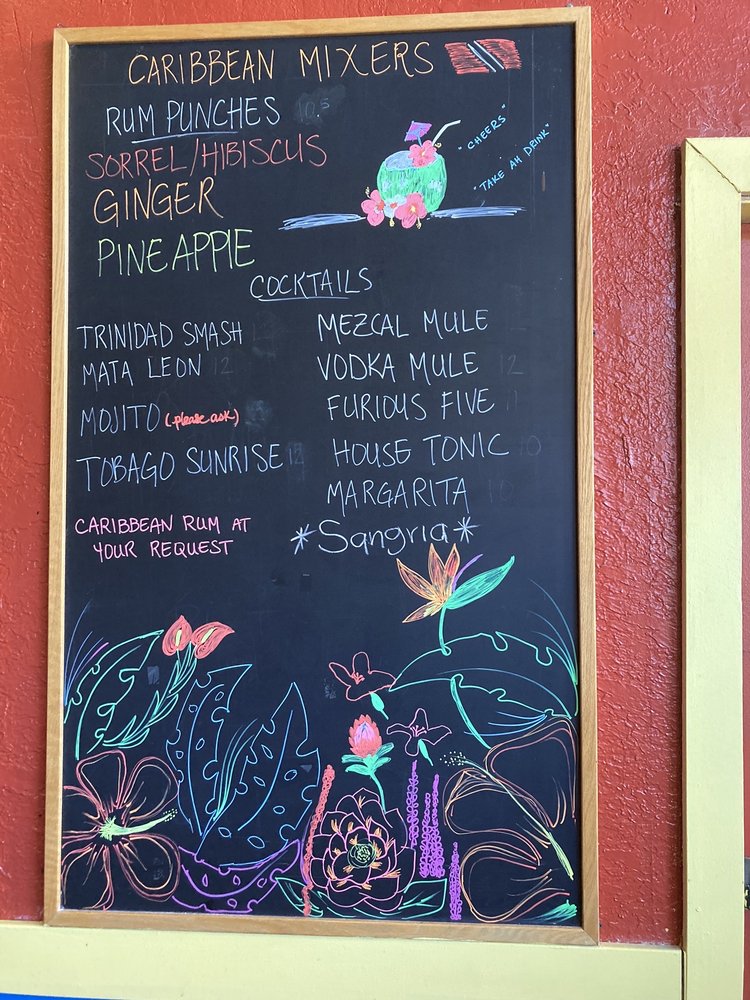 CARIBBEAN MIXERS
RUM PUNCHES 10.5
SORREL/HIBISCUS
GINGER
PINEAPPLE
"CHEERS"
"TAKE AH DRINK"
COCKTAILS
TRINIDAD SMASH
MATA LEON 12
MOJITO (please ask)
TOBAGO SUNRISE 12
CARIBBEAN RUM AT
YOUR REQUEST
MEZCAL MULE
VODKA MULE 12
FURIOUS FIVE 11
HOUSE TONIC 10
MARGARITA 10
*Sangria*